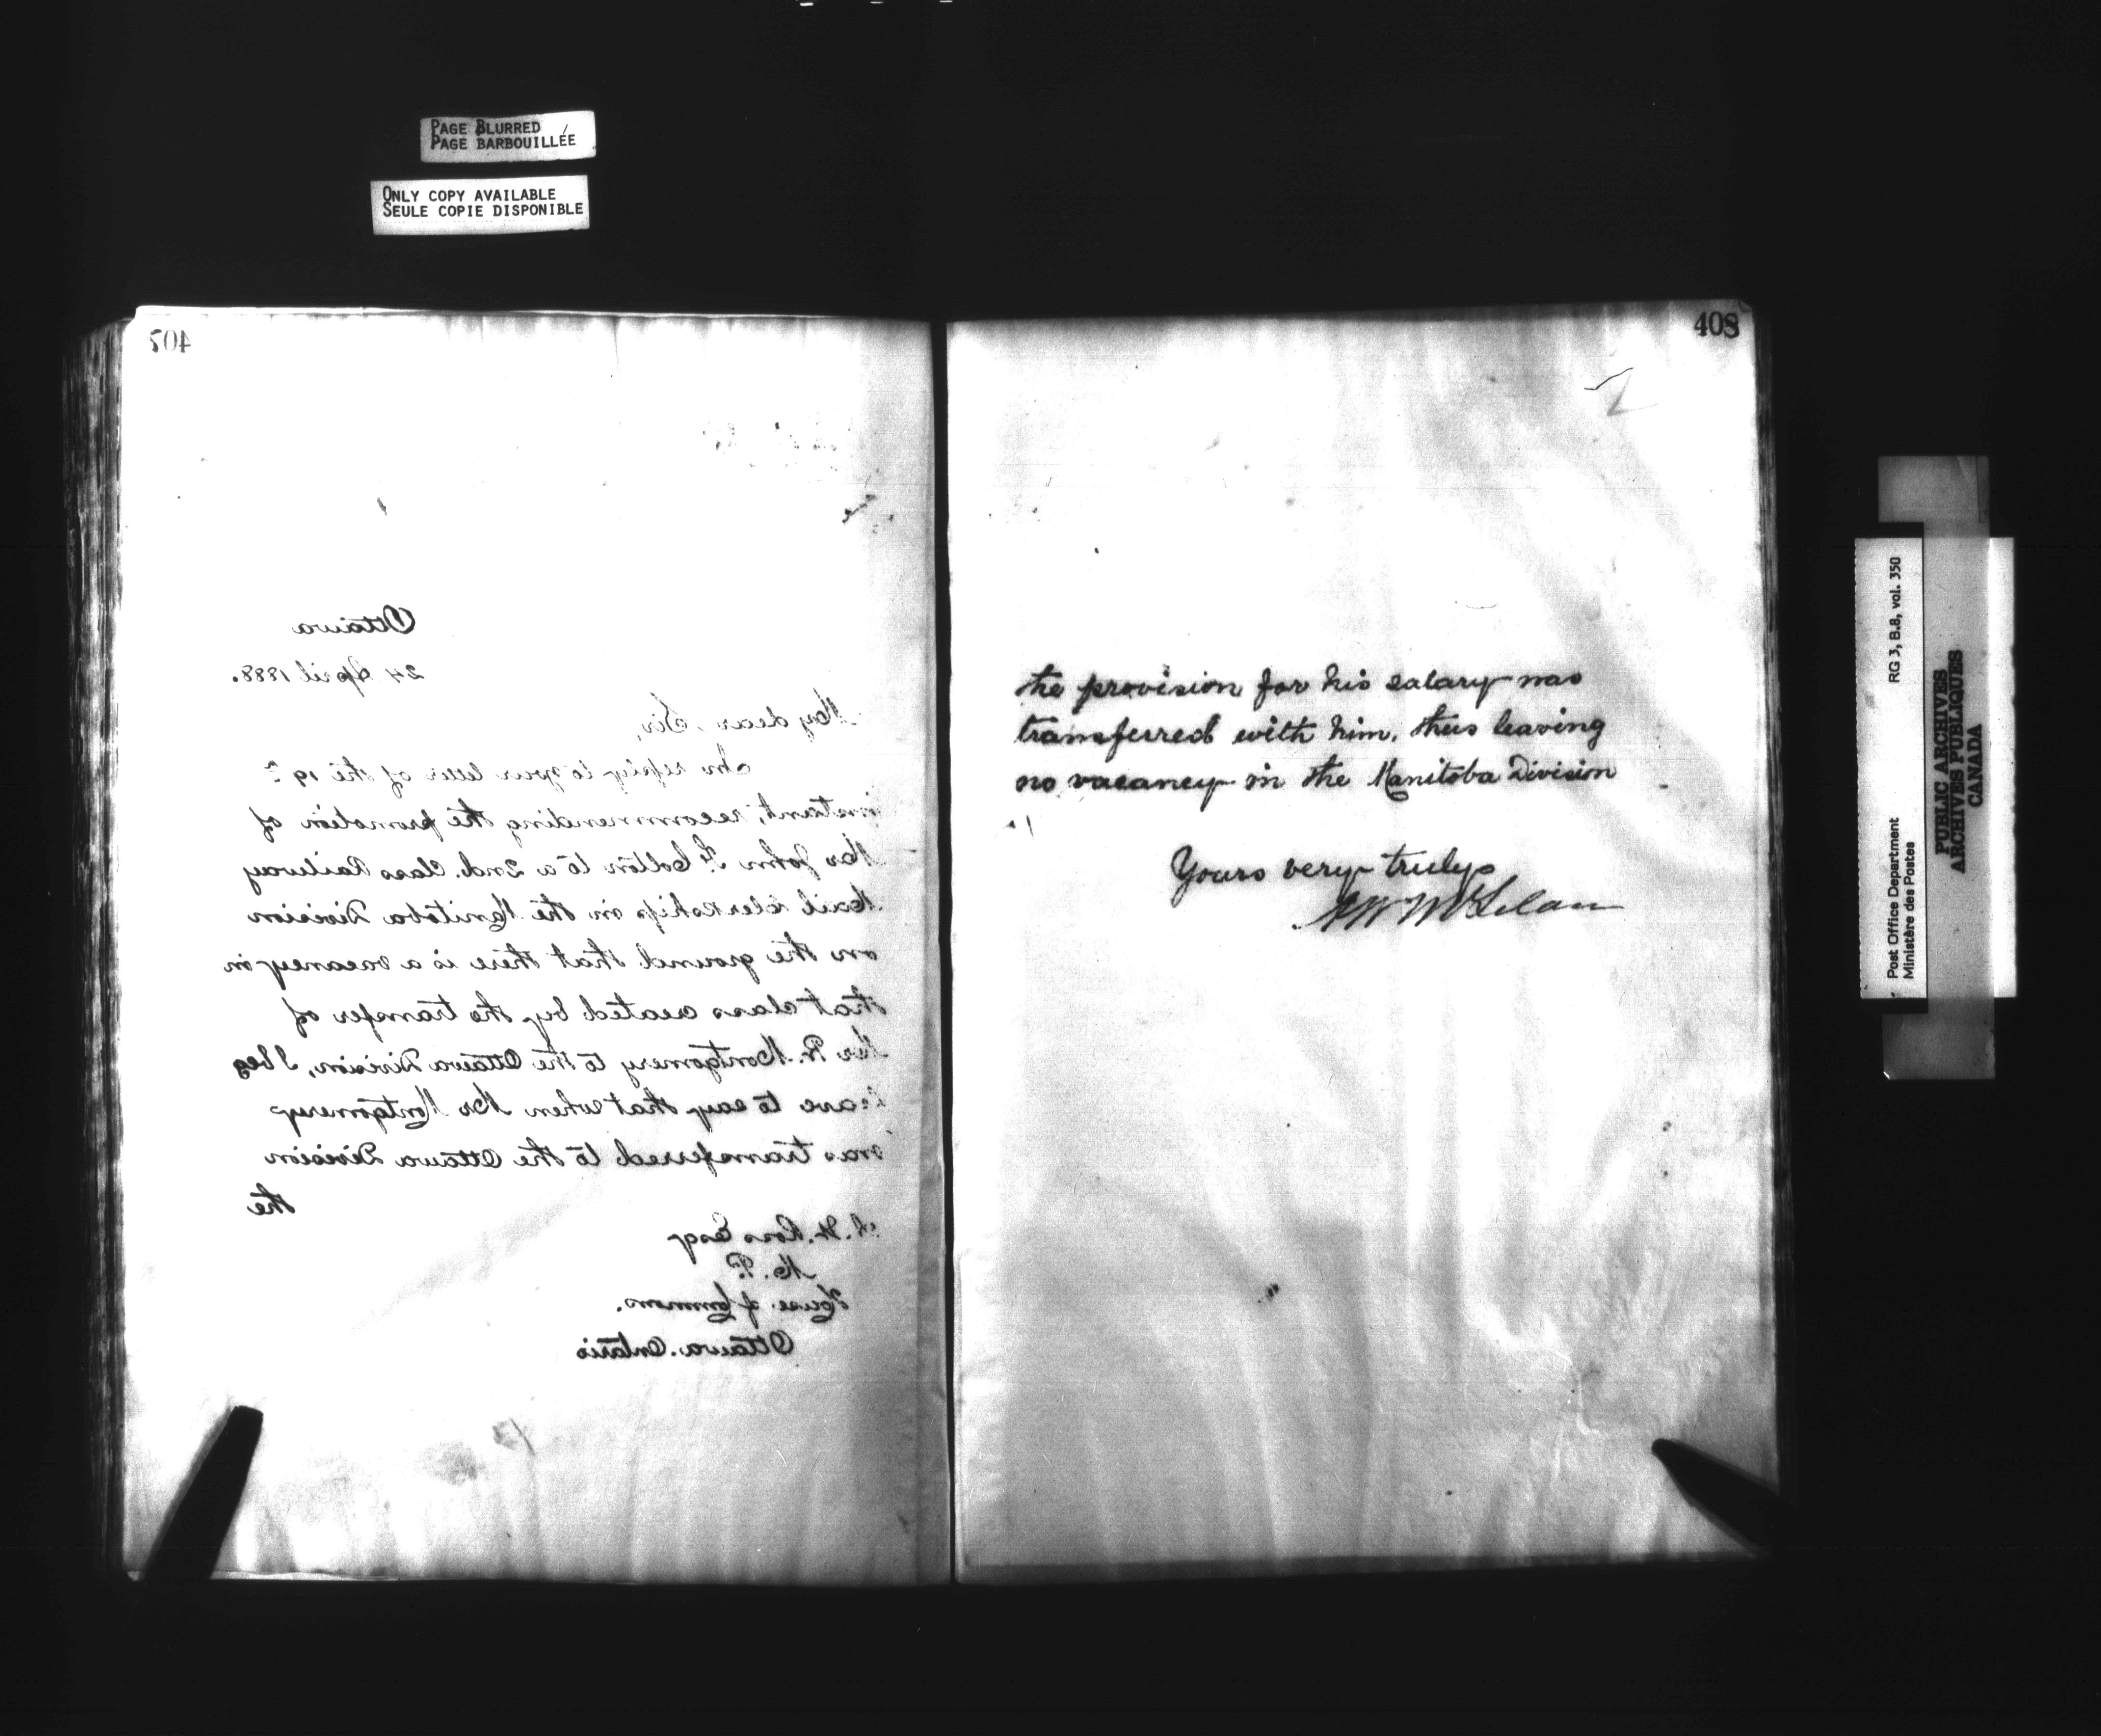 PAGE BLURRED
PAGE BARBOUILLÉE
ONLY COPY AVAILABLE
SEULE COPIE DISPONIBLE
407
Ottawa
24 April 1888.
My dear Sir,
In reply to your letter of the 19th
instant, recommending the promotion of
Mr John F. Cotton to a 2nd. Class Railway
Mail Clerkship in the Manitoba Division
on the ground that there is a vacancy in
that class created by the transfer of
Mr R. Montgomery to the Ottawa Division, I beg
leave to say that when Mr Montgomery
was transferred to the Ottawa Division
the
A. W. Ross Esqr
M. P.
House of Commons.
Ottawa. Ontario
408
the provision for his salary was
transferred with him, thus leaving
no vacancy in the Manitoba Division
Yours very truly
A W McLelan
Post Office Department RG 3, B.8, vol. 350
Ministère des Postes
PUBLIC ARCHIVES
ARCHIVES PUBLIQUES
CANADA